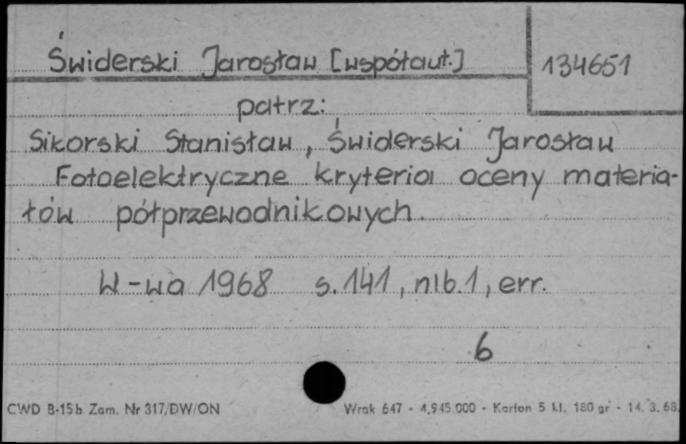 Świderski Jarosław [współaut.]
134651
patrz:
Sikorski Stanisław, Świderski Jarosław
Fotoelektryczne kryteria oceny materia-
łów półprzewodnikowych.
W-wa 1968 s. 141, nlb. 1, err.
6
CWD B-15b Zam. Nr 317/DW/ON
Wrak 647 - 4.945.000 - Karton 5 kl. 180 gr - 14. 3. 68.